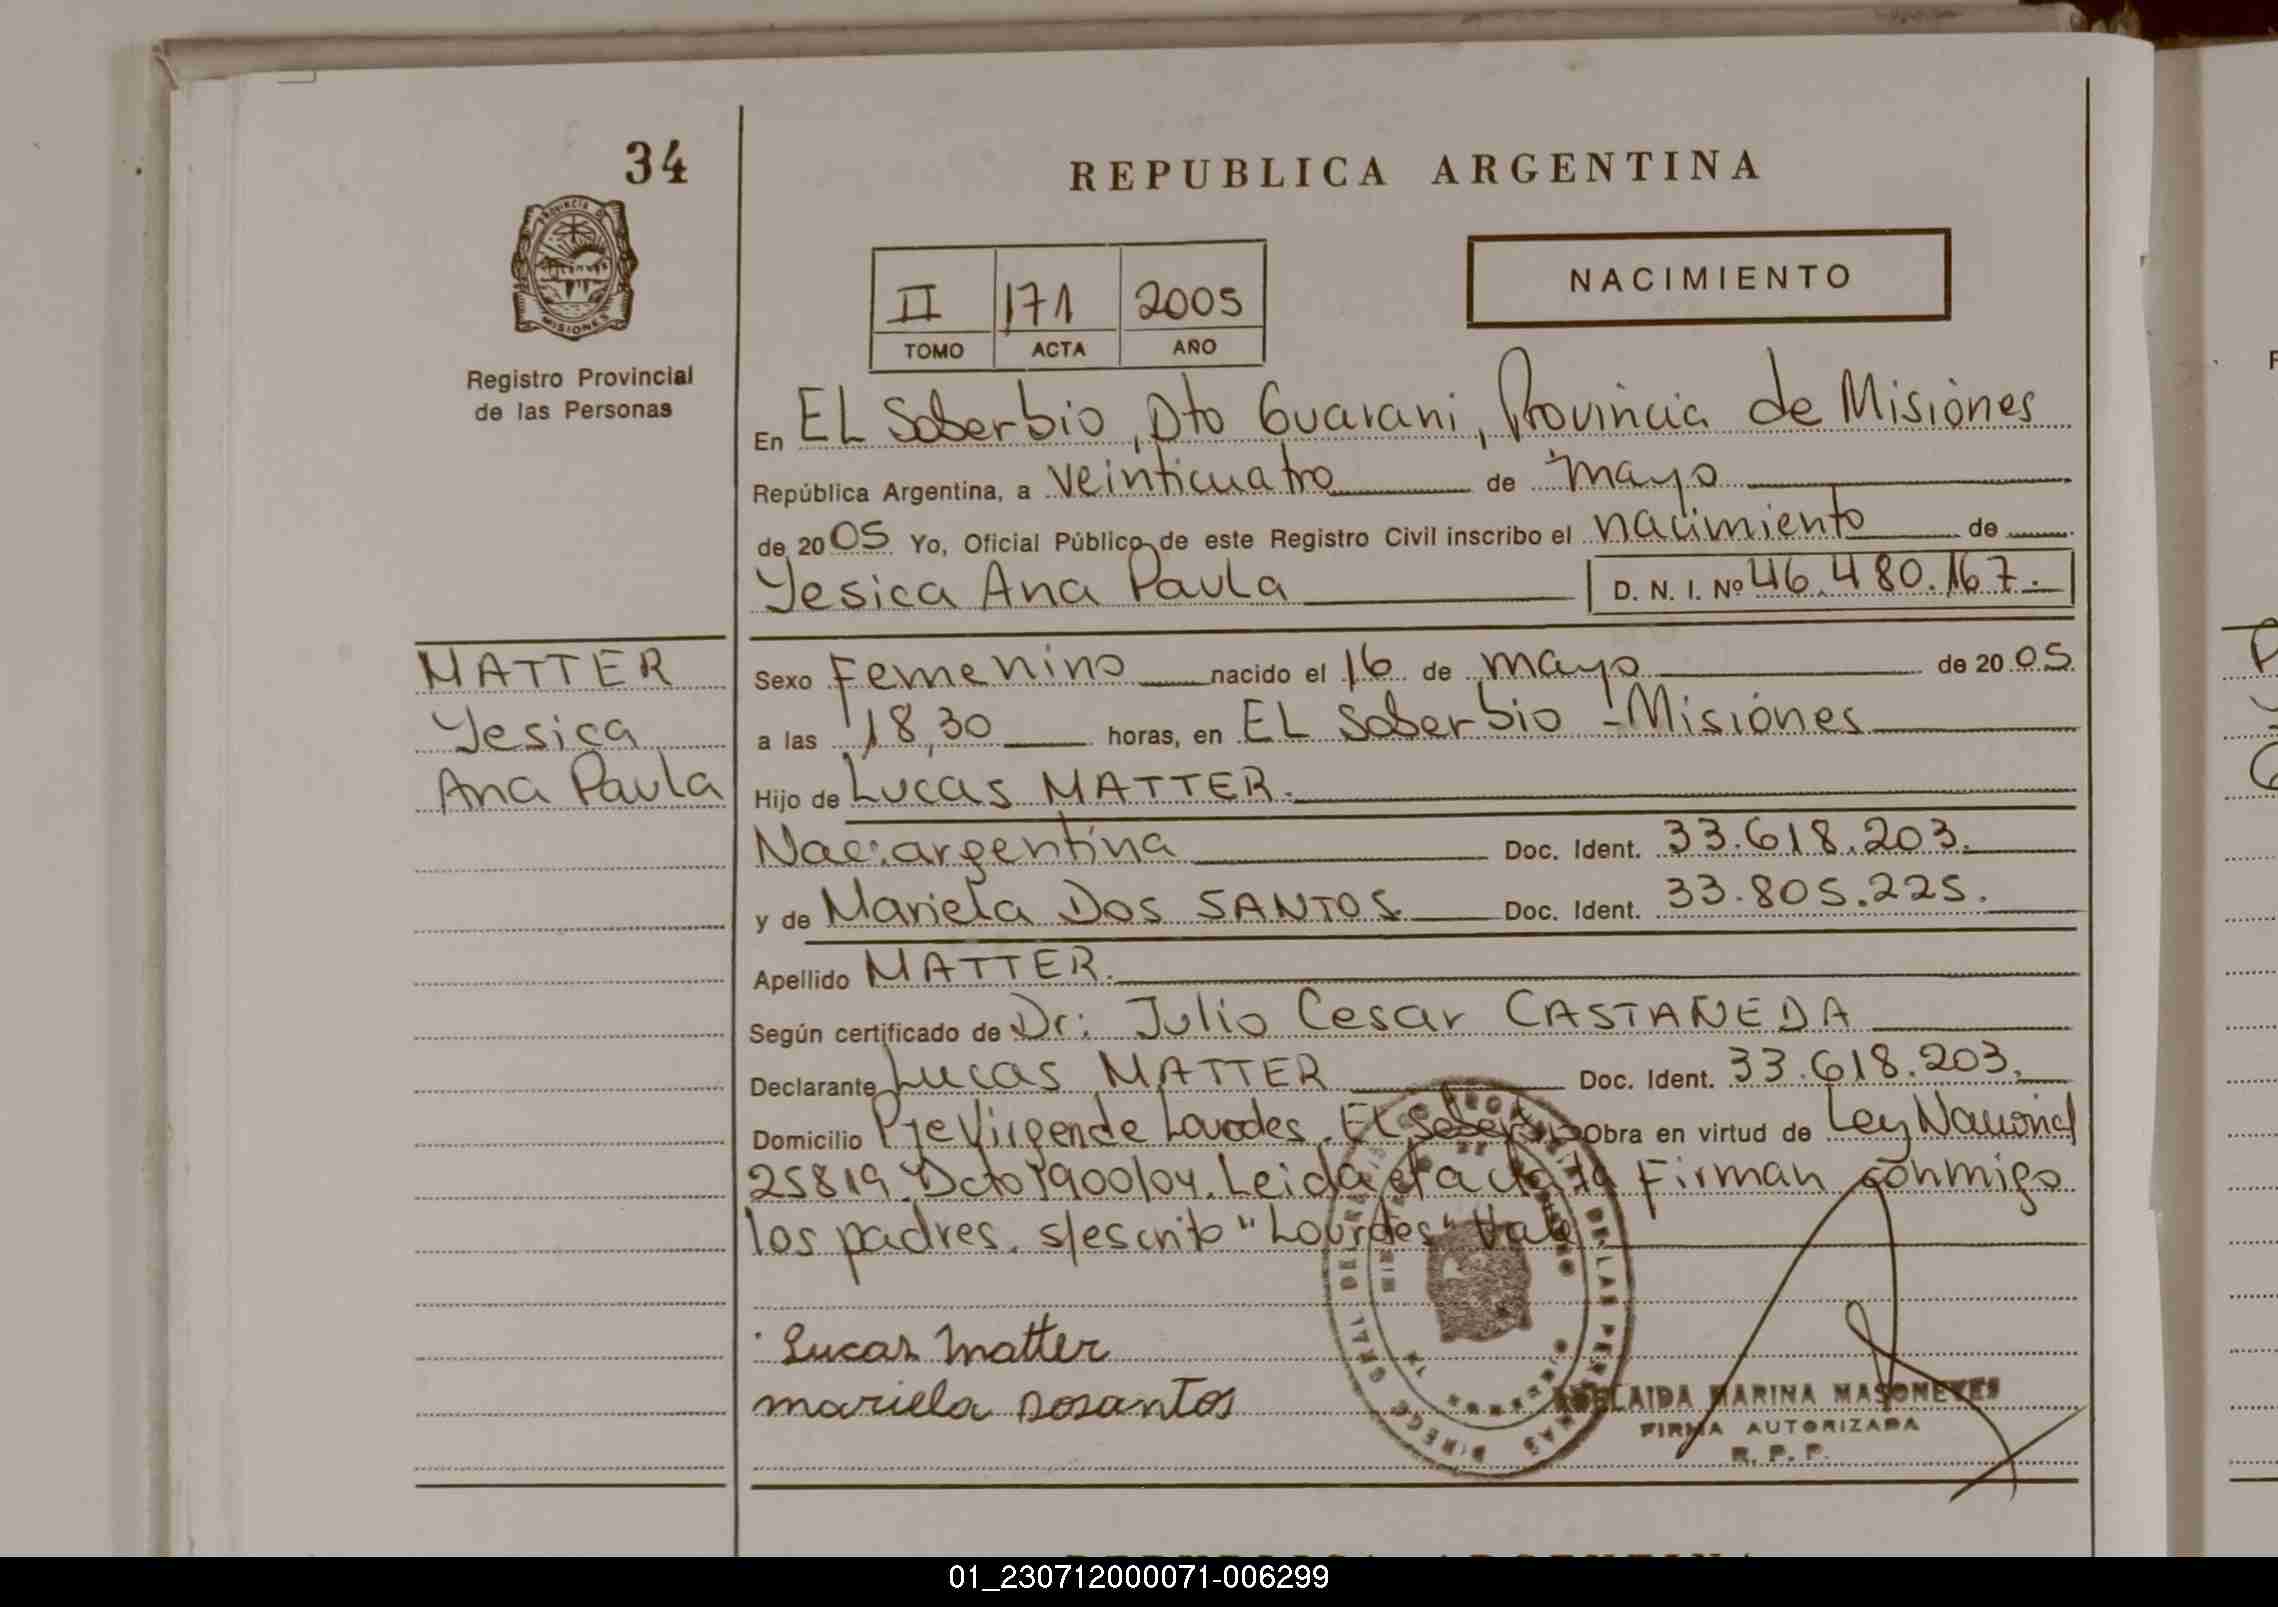 34
REPUBLICA ARGENTINA
PROVINCIA DE
MISIONES
Registro Provincial
de las Personas
II 171 2005
TOMO ACTA AÑO
NACIMIENTO
En EL Soberbio, Dto Guarani, Provincia de Misiónes
República Argentina, a veinticuatro de mayo
de 2005 Yo, Oficial Público de este Registro Civil inscribo el nacimiento de
Yesica Ana Paula D. N. I. Nº 46.480.167.
MATTER
Yesica
Ana Paula
Sexo Femenino nacido el 16 de mayo de 2005
a las 18,30 horas, en EL Soberbio - Misiónes
Hijo de Lucas MATTER.
Nac: argentina Doc. Ident. 33.618.203.
y de Mariela Dos SANTOS Doc. Ident. 33.805.225.
Apellido MATTER.
Según certificado de Dr: Julio Cesar CASTAÑEDA
Declarante Lucas MATTER Doc. Ident. 33.618.203.
Domicilio Pje Virgen de Lourdes. EL Soberbio Obra en virtud de Ley Nacional
25819. Dcto 1900/04. Leida el acta la Firman conmigo
los padres. s/escrito "Lourdes" Vale
Lucas Matter
mariela Dosantos
MARINA MASONEVES
FIRMA AUTORIZADA
R. P. P.
01_230712000071-006299